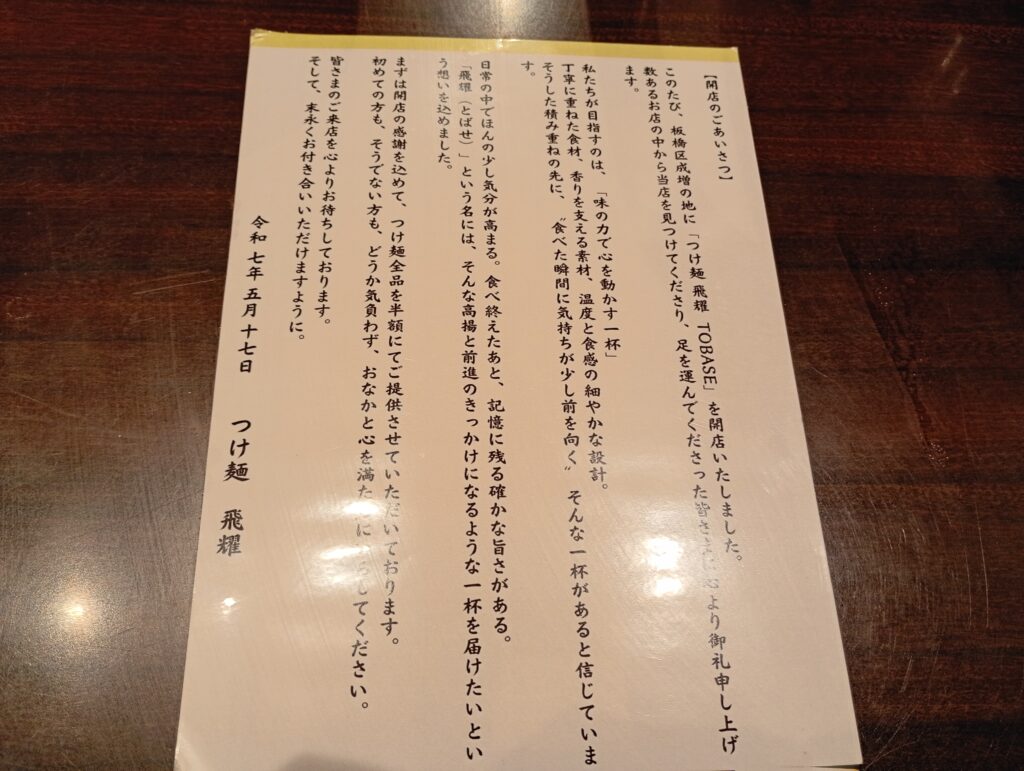 【開店のごあいさつ】
このたび、板橋区成増の地に「つけ麺 飛耀 TOBASE」を開店いたしました。
数あるお店の中から当店を見つけてくださり、足を運んでくださった皆さまに心より御礼申し上げ
ます。
私たちが目指すのは、「味の力で心を動かす一杯」
丁寧に重ねた食材、香りを支える素材、温度と食感の細やかな設計。
そうした積み重ねの先に、〝食べた瞬間に気持ちが少し前を向く〟そんな一杯があると信じていま
す。
日常の中でほんの少し気分が高まる。食べ終えたあと、記憶に残る確かな旨さがある。
「飛耀（とばせ）」という名には、そんな高揚と前進のきっかけになるような一杯を届けたいとい
う想いを込めました。
まずは開店の感謝を込めて、つけ麺全品を半額にてご提供させていただいております。
初めての方も、そうでない方も、どうか気負わず、おなかと心を満た に してください。
皆さまのご来店を心よりお待ちしております。
そして、末永くお付き合いいただけますように。
令和七年五月十七日 つけ麺 飛耀